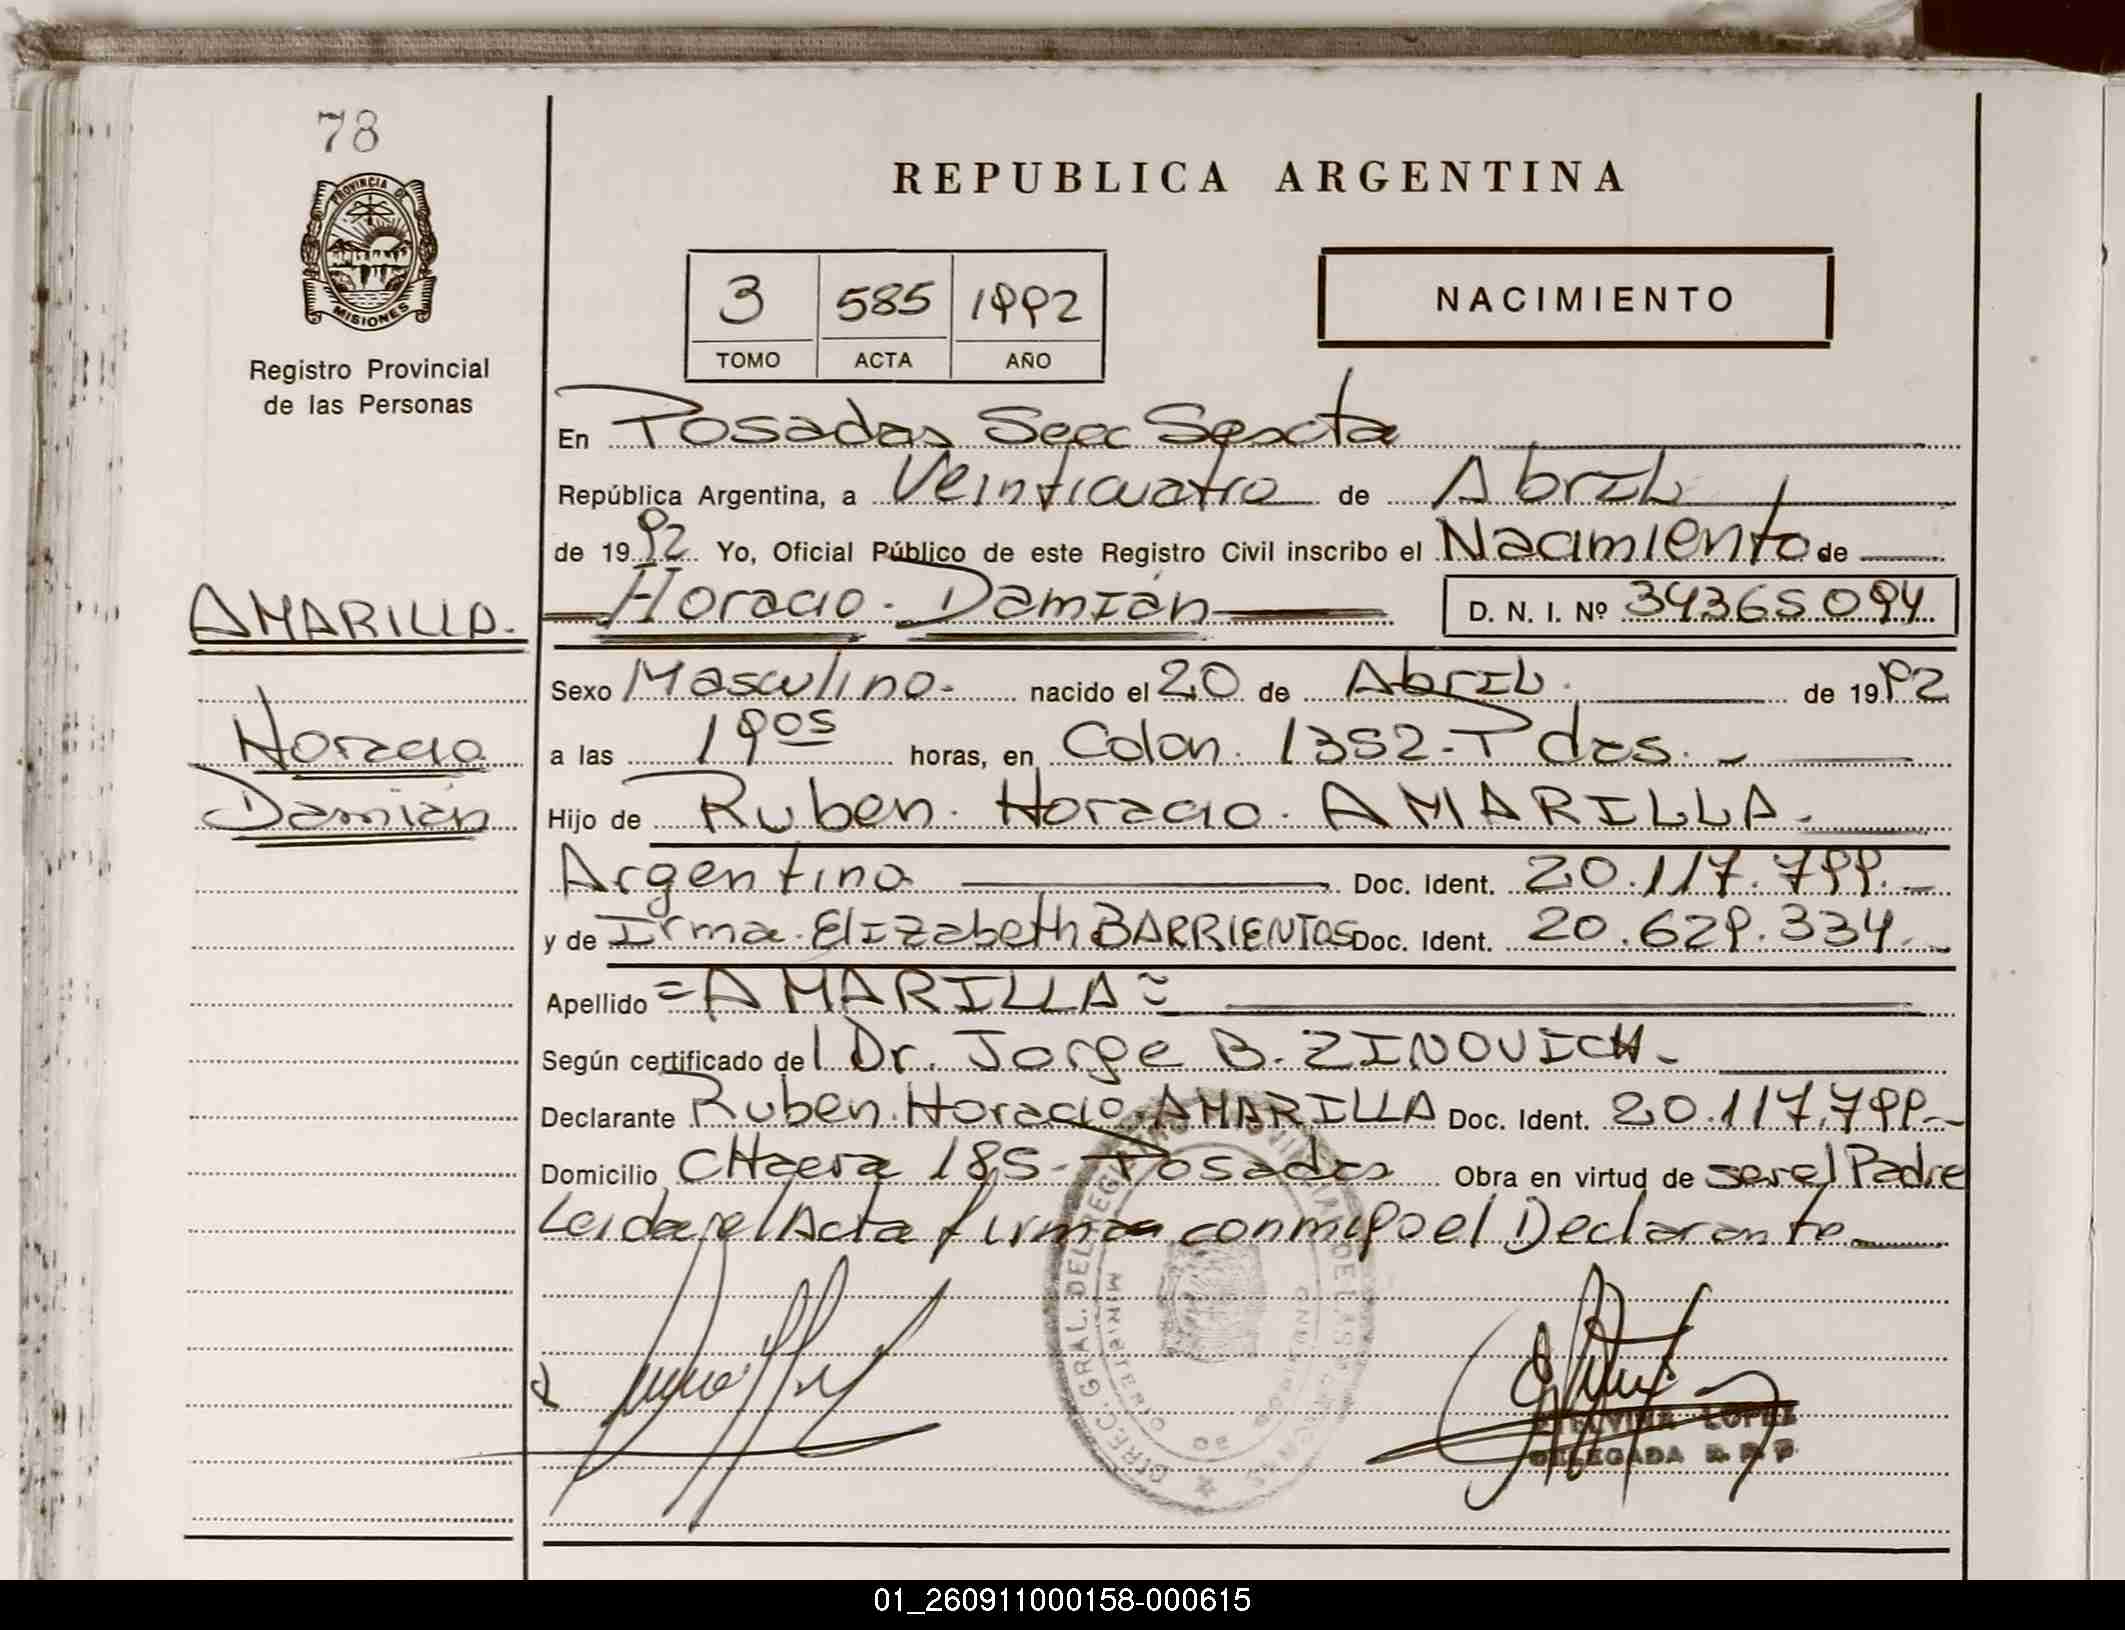 78
PROVINCIA DE
MISIONES
Registro Provincial
de las Personas
REPUBLICA ARGENTINA
3 585 1992
TOMO ACTA AÑO
NACIMIENTO
En Posadas Secc Sexta
República Argentina, a Veinticuatro de Abril
de 1992 Yo, Oficial Público de este Registro Civil inscribo el Nacimiento de
Horacio. Damián D. N. I. Nº 34365.094
AMARILLA.
Horacio
Damián
Sexo Masculino. nacido el 20 de Abril. de 1992
a las 19 05 horas, en Colon. 1352-Pdas.-
Hijo de Ruben. Horacio. AMARILLA.
Argentino Doc. Ident. 20.117.799.-
y de Irma. Elizabeth BARRIENTOS Doc. Ident. 20.629.334.-
Apellido =AMARILLA=
Según certificado del Dr. Jorge B. ZINOVICH.
Declarante Ruben. Horacio. AMARILLA Doc. Ident. 20.117.799.-
Domicilio CHacra 185- Posadas Obra en virtud de ser el Padre
Leida el Acta firma conmigo el Declarante.
DIREC. GRAL. DEL REGISTRO PROVINCIAL DE LAS PERSONAS
MINISTERIO DE GOBIERNO
ETELVINA LOPEZ
DELEGADA R. P. P.
01_260911000158-000615